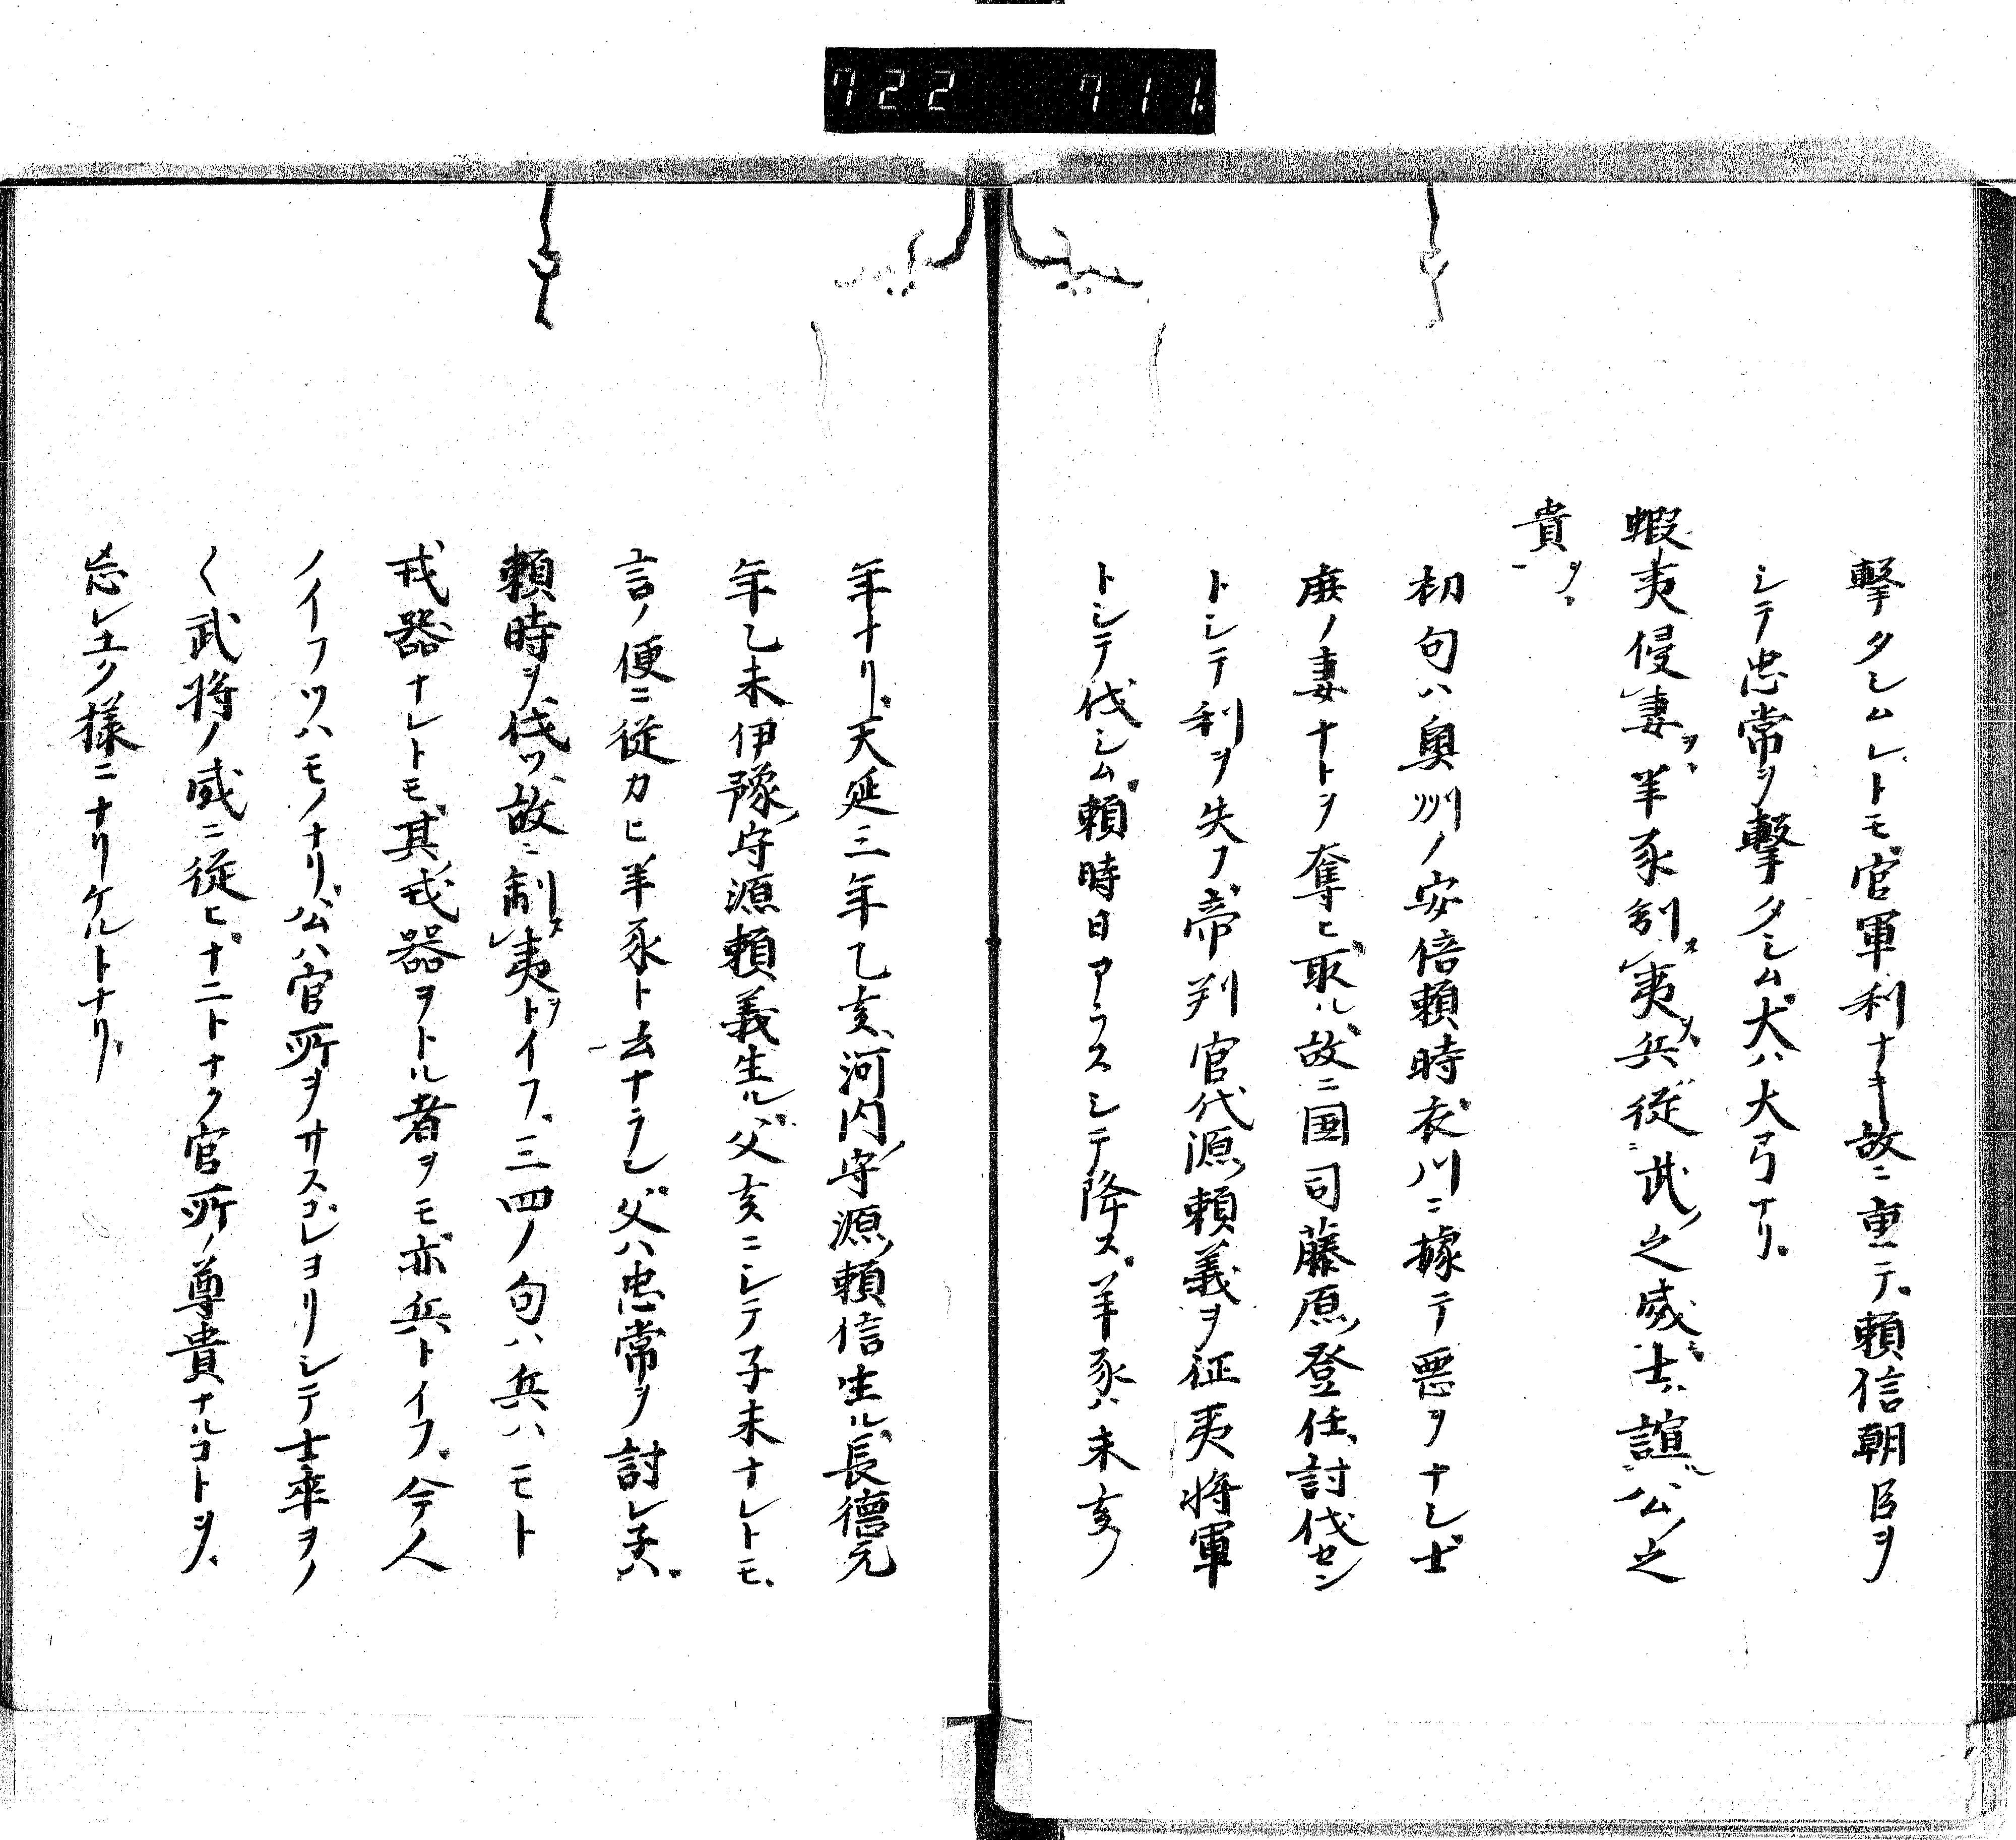 722 711
撃タシムレトモ官軍利ナキ故ニ重テ頼信朝臣ヲ
シテ忠常ヲ撃タシム犬ハ大弓ナリ
蝦夷侵妻ヲ羊豕制ス夷ヲ兵従武之威ニ士ハ諠公之
貴ヲ
初句ハ奥州ノ安倍頼時衣川ニ據テ悪ヲナシ士
庶ノ妻ナトヲ奪ヒ取ル故ニ国司藤原登任討伐セン
トシテ利ヲ失フ帝判官代源頼義ヲ征夷将軍
トシテ伐シム頼時日アラスシテ降ス羊豕ハ未亥ノ
年ナリ天延三年乙亥河内守源頼信生ル長徳元
年乙未伊豫守源頼義生ル父亥ニシテ子未ナレトモ
言ノ便ニ従カヒ羊豕ト云ナラン父ハ忠常ヲ討シ子ハ
頼時ヲ伐ツ故ニ制ス夷ヲトイフ三四ノ句ハ兵ハモト
戎器ナレトモ其戎器ヲトル者ヲモ亦兵トイフ今人
ノイフツハモノナリ公ハ官所ヲサスコレヨリシテ士卒ヲノ
く武将ノ威ニ従ヒナニトナク官所ノ尊貴ナルコトヲ
忘レユク様ニナリケルトナリ